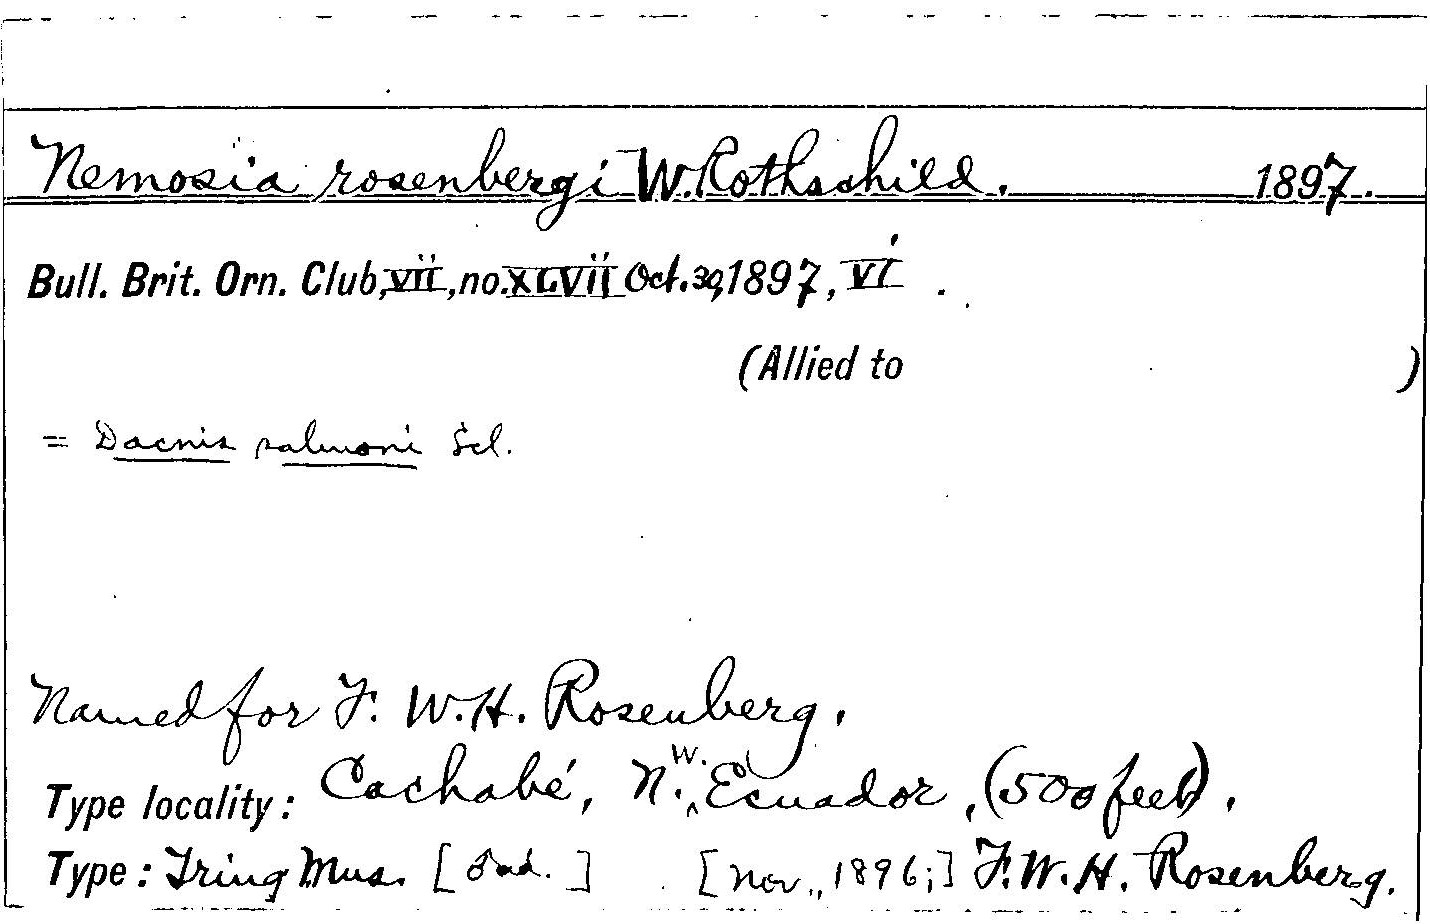 Nemosia rosenbergi W. Rothschild. 1897.
Bull. Brit. Orn. Club, vii, no. XLVII Oct. 30, 1897, vi .
(Allied to )
= Dacnis salmoni Scl.
Named for F. W. H. Rosenberg.
Type locality: Cachabé, N. W. Ecuador, (500 feet).
Type: Tring Mus. [ ] [Nov., 1896;] F. W. H. Rosenberg.